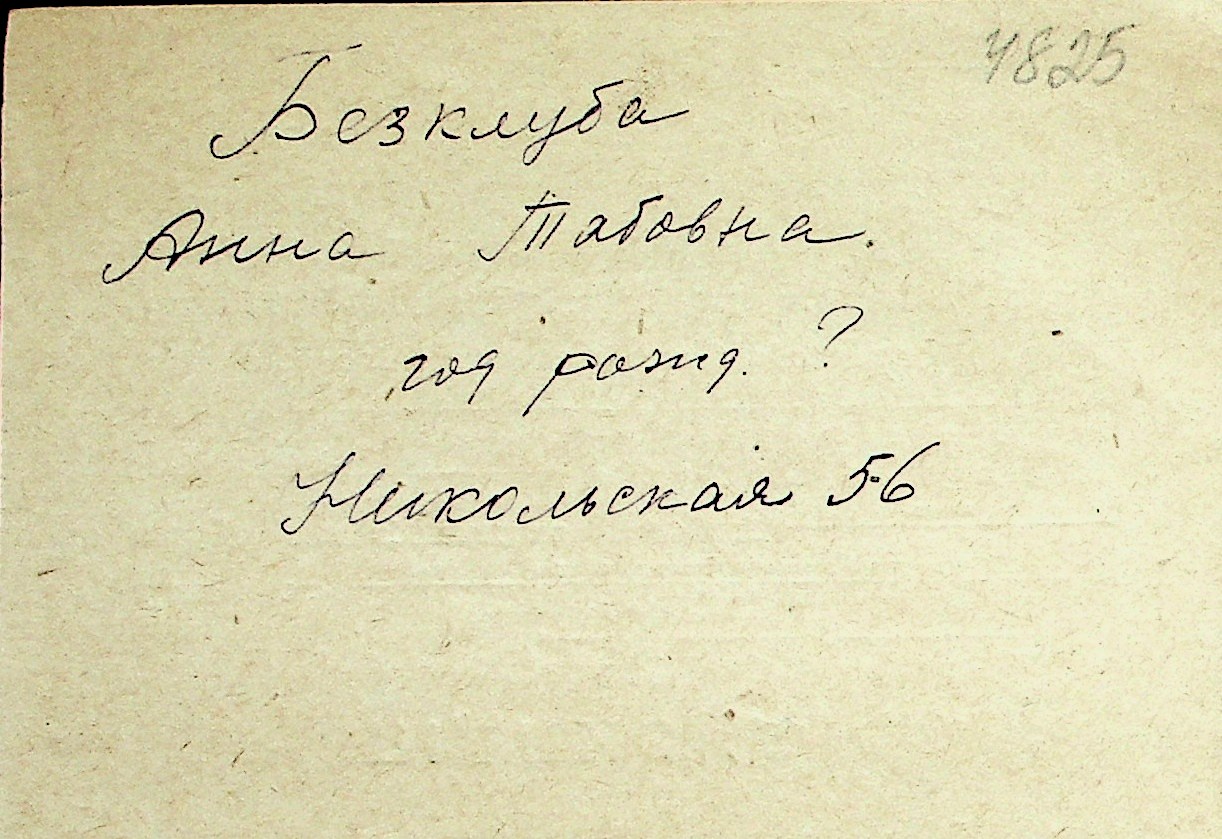 4825
Безклуба
Анна Табовна.
год рожд. ?
Никольская 56